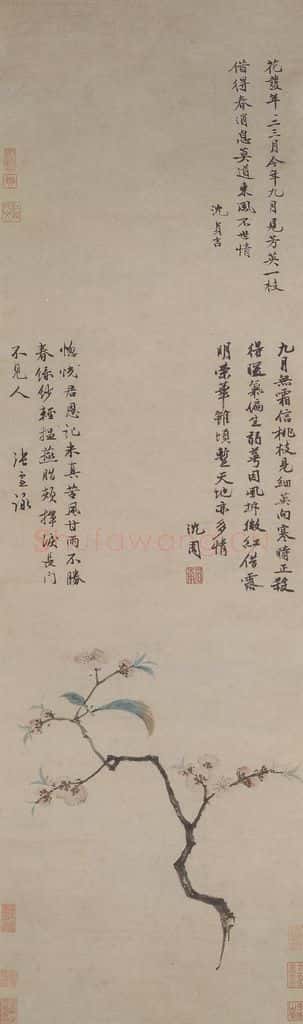 花發年〻二三月今年九月見芳英一枝
借得春消息莫道東風不世情
沈貞吉
九月無霜信桃枝見細英向寒時正殺
得暖氣偏生弱萼因風拆微紅借露
明榮華雖頃蹔天地亦多情
沈周
君恩記未真苦風甘雨不勝
春依輕搵燕脂頰揮淚長門
不見人